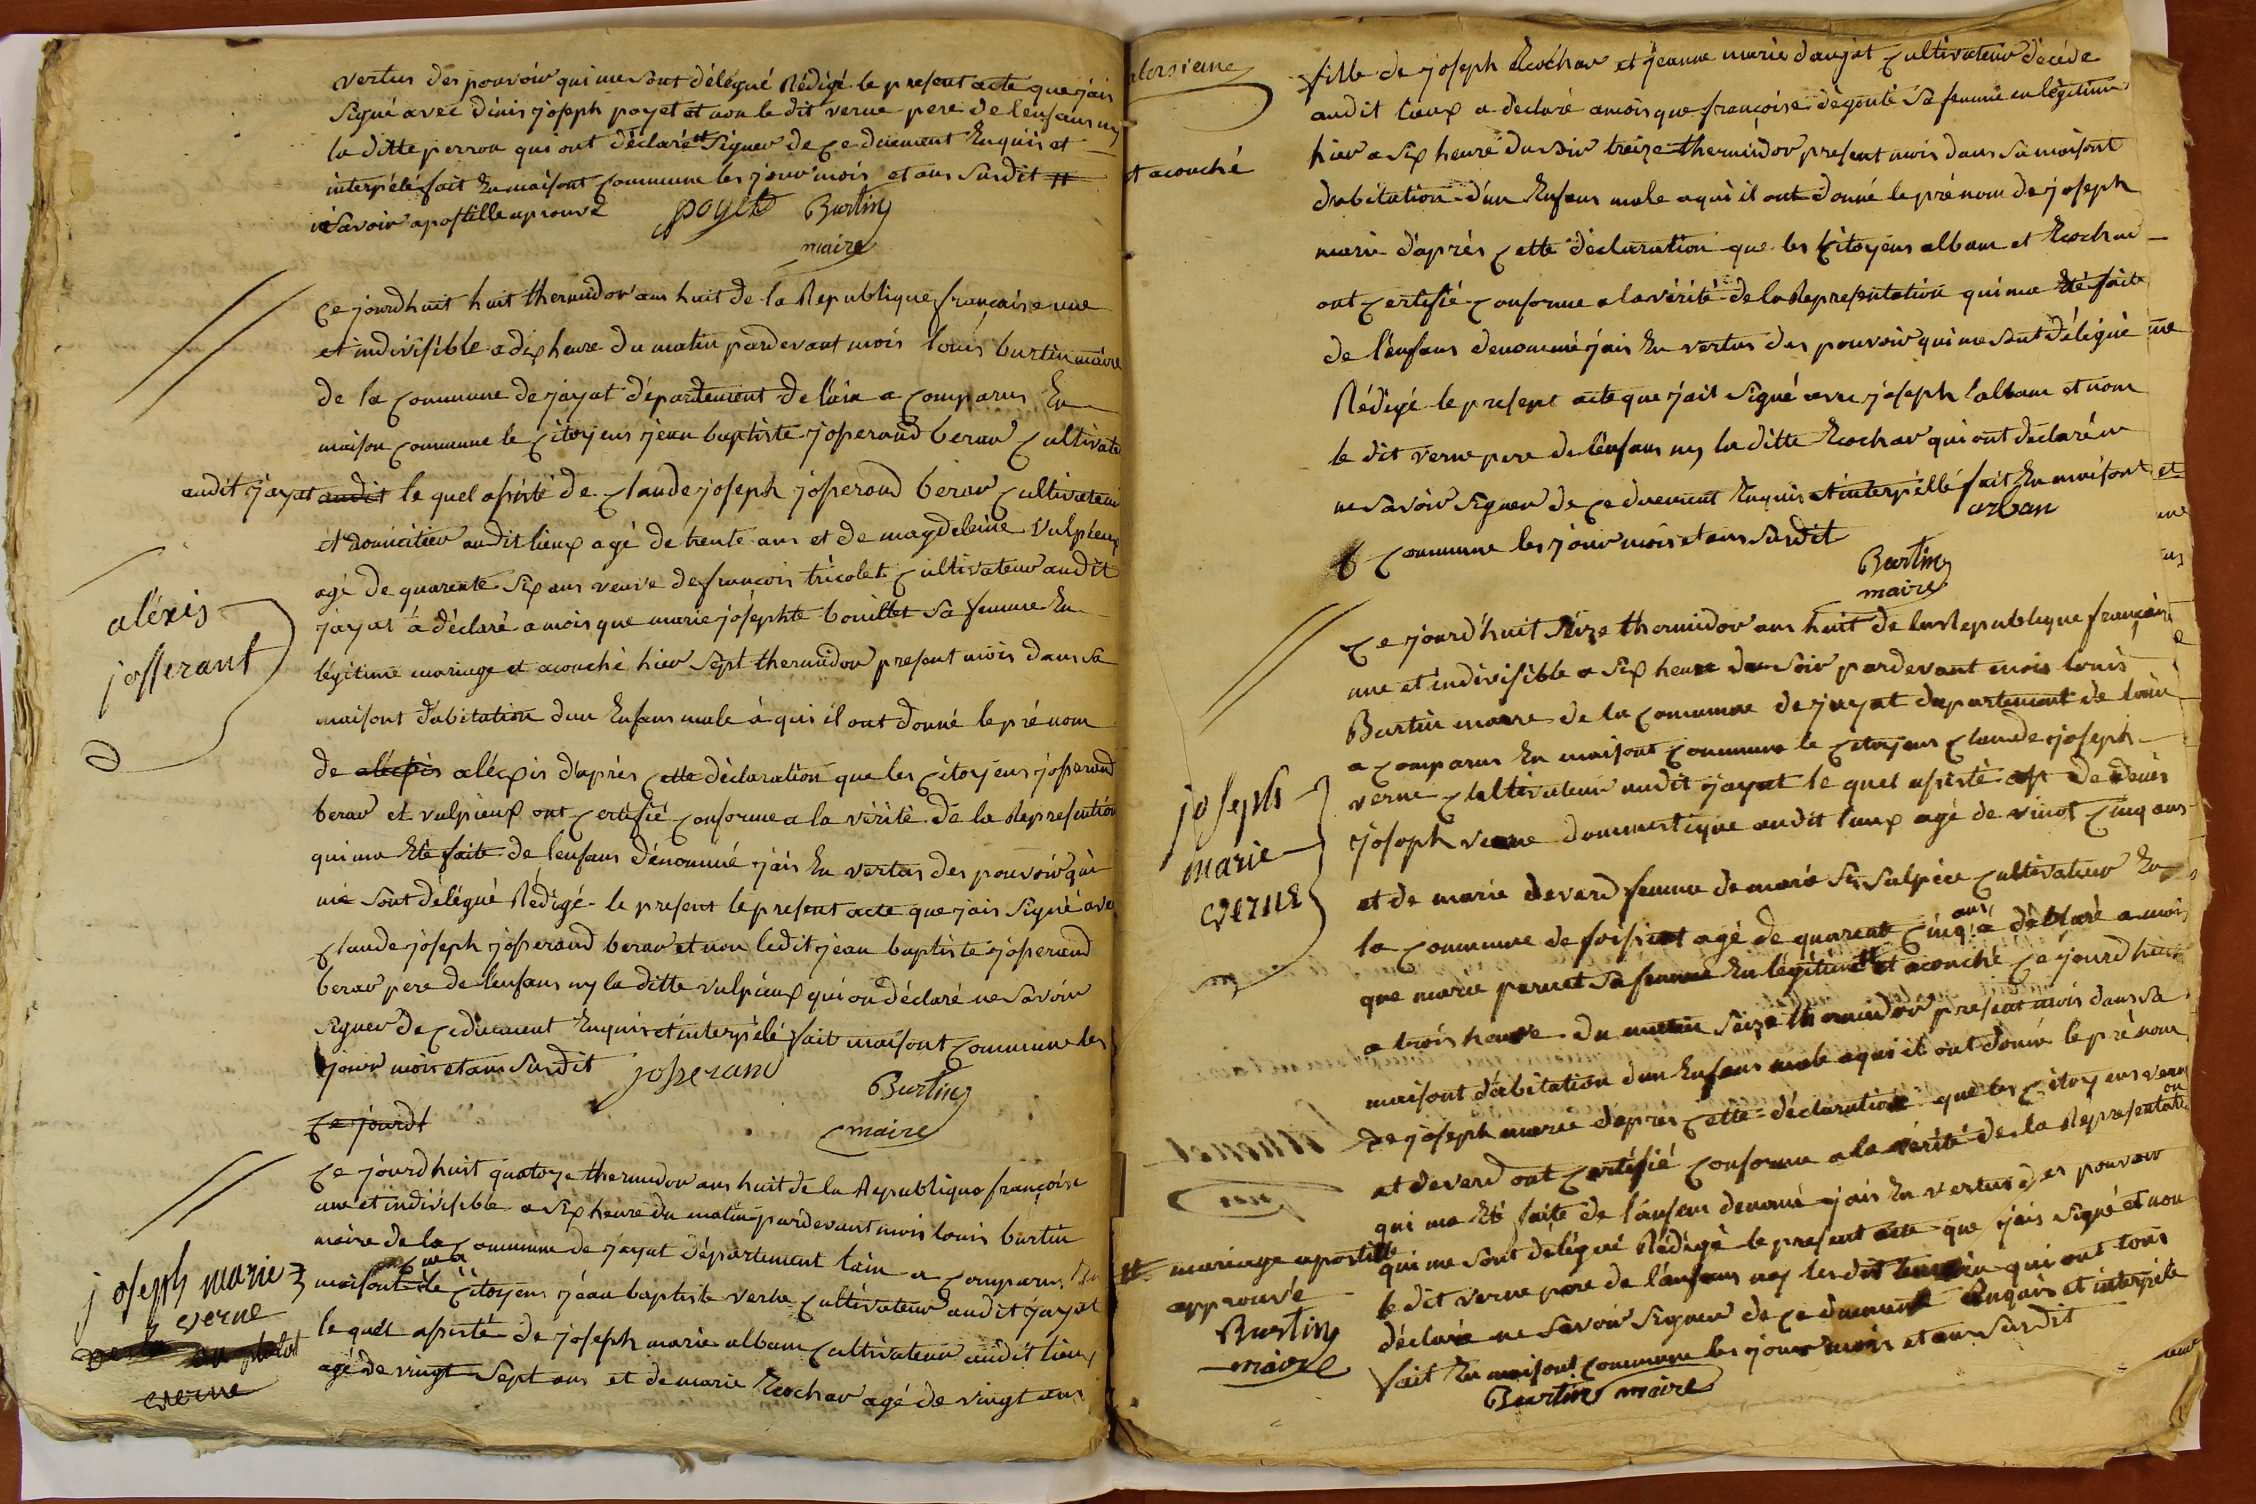 vertus des pouvoir qui me sont délégué Rédigé le present acte que jais
Signé avec dénis joseph poyet et non le dit verne pere de lenfans ny
la ditte perron qui ont déclaré Signer de ce duement Enquis et
interpélé fait En maisont Commune les jour mois et ans Susdit #
né Savoir apostille aprouvé
poyet Burtin
maire
Ce jourdhuit huit thermidor ans huit de la Republique française une
et indivisible a dix heure du matin pardevant mois louis burtin maire
de la Commune de jayat département de lain a Comparus En
maison Commune le Citoyens jean baptiste josserand berar Cultivate
audit jayat audit le quel asisté de Claude joseph josserand berar Cultivateur
et domicilier audit lieux agé de trente ans et de magdeleine Vulpieux
agé de quarente Six ans veuve de francois tricolet Cultivateur audit
jayat à déclaré a mois que marie joséphte bouillet Sa femme En
légitime mariage et acouché hier Sept thermidor present mois dans Sa
maisont dabitation dun Enfans male à qui il ont donné le pré nom
de alexis aléxis d'après Cette déclaration que les Citoyens josserand
berar et vulpieux ont Certifié Conforme a la vérité de la Representation
qui ma Eté faite de lenfans dénommé jais En vertus des pouvoir qui
mé sont délégué Rédigé le present le present acte que jais Signé avec
Claude joseph josserand berar et non ledit jean baptiste josserand
berar pere de lenfans ny la ditte vulpieux qui on déclaré ne Savoir
Signer de Ce duement Enquis et interpélé fait maisont Commune les
jour mois et ans Susdit josserand
Burtin
maire
Ce jourdt
aléxis
josserant
Ce jourdhuit quatoze thermidor ans huit de la Republique françoise
une et indivisible a Six heure du matin pardevant mois louis burtin
maire de la Commune de jayat Département lain a Comparus En
maisont Cmea le Citoyens jean baptiste verne Cultivateur audit jayat
le quel asisté de joseph marie albam Cultivateur audit lieux
agé de vingt Sept ans et de marie Ecochar agé de vingt ans
joseph marie
verne
verne
fille de joseph Ecochar et jeanne marie daujat Cultivateur décéde
audit lieux a déclaré a mois que françoise dégoute Sa femme en légitime
et acouché
hier a Six heure du Soir treize thermidor present mois dans Sa maisont
dabitation dun Enfans male a qui il ont donné le pré nom de joseph
marie d'après Cette déclaration que les Citoyens albam et Ecochar
ont Certifié Conforme a la vérité de la Representation qui ma Eté faite
de lenfans denommé jais En vertus des pouvoir qui me sont délégué
Rédigé le present acte que jait Signé avec joseph albam et nom
le dit verne pere de lenfans ny la ditte Ecochar qui ont déclaré
ne Savoir Signer de Ce duement Enquis et interpéllé fait En maisont
alban
Commune les jour mois et ans Susdit
Burtin
maire
Ce jourd'huit Séize thermidor ans huit de la Republique françois
une et indivisible a Six heure du Soir pardevant mois louis
Burtin maire de la Commune de jayat département de lain
a Comparus En maisont Commune le Citoyens Claude joseph
verne Cultivateur audit jayat le quel asisté de denis
joseph verne dommestique audit lieux agé de vinot Cinq ans
et de marie deverd femme de marie St Sulpice Cultivateur En
la Commune de foissiat agé de quarent Cinq ans à déclaré a mois
que marie pernet Sa femme En légitime # et acouché Ce jourdhuit
a trois heure du matin Seize thermidor present mois dans Sa
maisont dabitation dun Enfans male a qui il ont donné le pré nom
de joseph marie dapres Cette déclaration que les Citoyens verne
et deverd ont Certifié Conforme a la vérité de la Representation
qui ma Eté faite de lanfans denomé jais En vertus des pouvoir
qui me sont délégué Rédigé le present acte que jais Signé et non
le dit verne pere de lanfans ny les dit temoin qui ont tous
déclaré ne Savoir Signer de Ce duement Enquis et interpélé
fait En maisont Commune les jour mois et ans Susdit
Burtin maire
joseph
marie
verne
# mariage apostille
approuvé
Burtin
maire